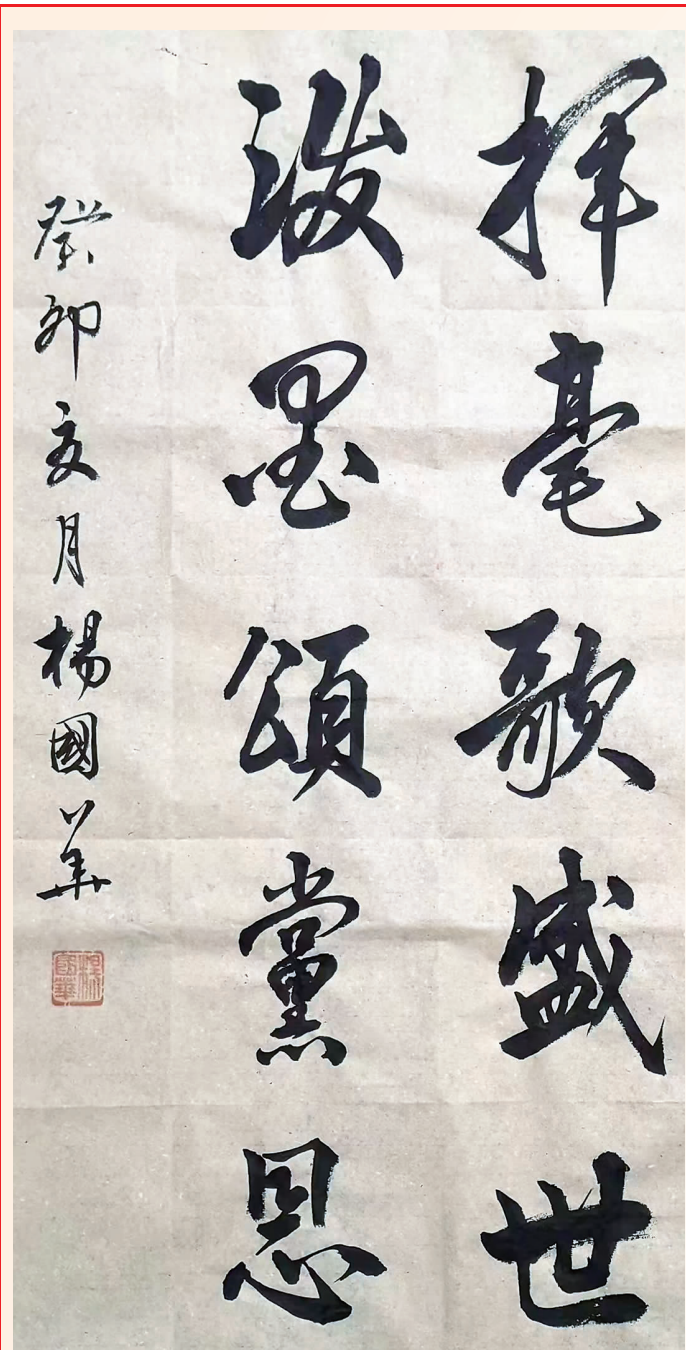 揮毫歌盛世
潑墨頌黨恩
癸卯亥月楊國華
楊國華